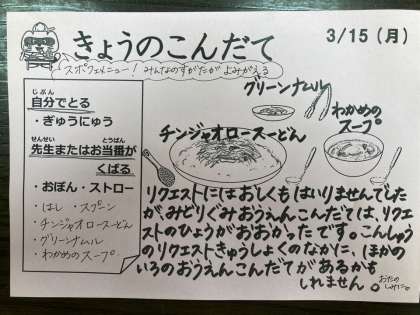 きょうのこんだて
3/15（月）
スポフェメニュー！みんなのすがたが よみがえる
じぶん
自分でとる
・ぎゅうにゅう
せんせい とうばん
先生またはお当番が
くばる
・おぼん・ストロー
・はし ・スプーン
・チンジャオロースーどん
・グリーンナムル
・わかめのスープ
グリーンナムル
わかめの
スープ
チンジャオロースーどん
リクエストにはおしくもはいりませんでした
がみどりぐみおうえんこんだては、リクエ
ストのひょうがおおかったです。こんしゅう
のリクエストきゅうしょくのなかに、ほかの
いろのおうえんこんだてがあるかも
しれません。
おたの
しみに